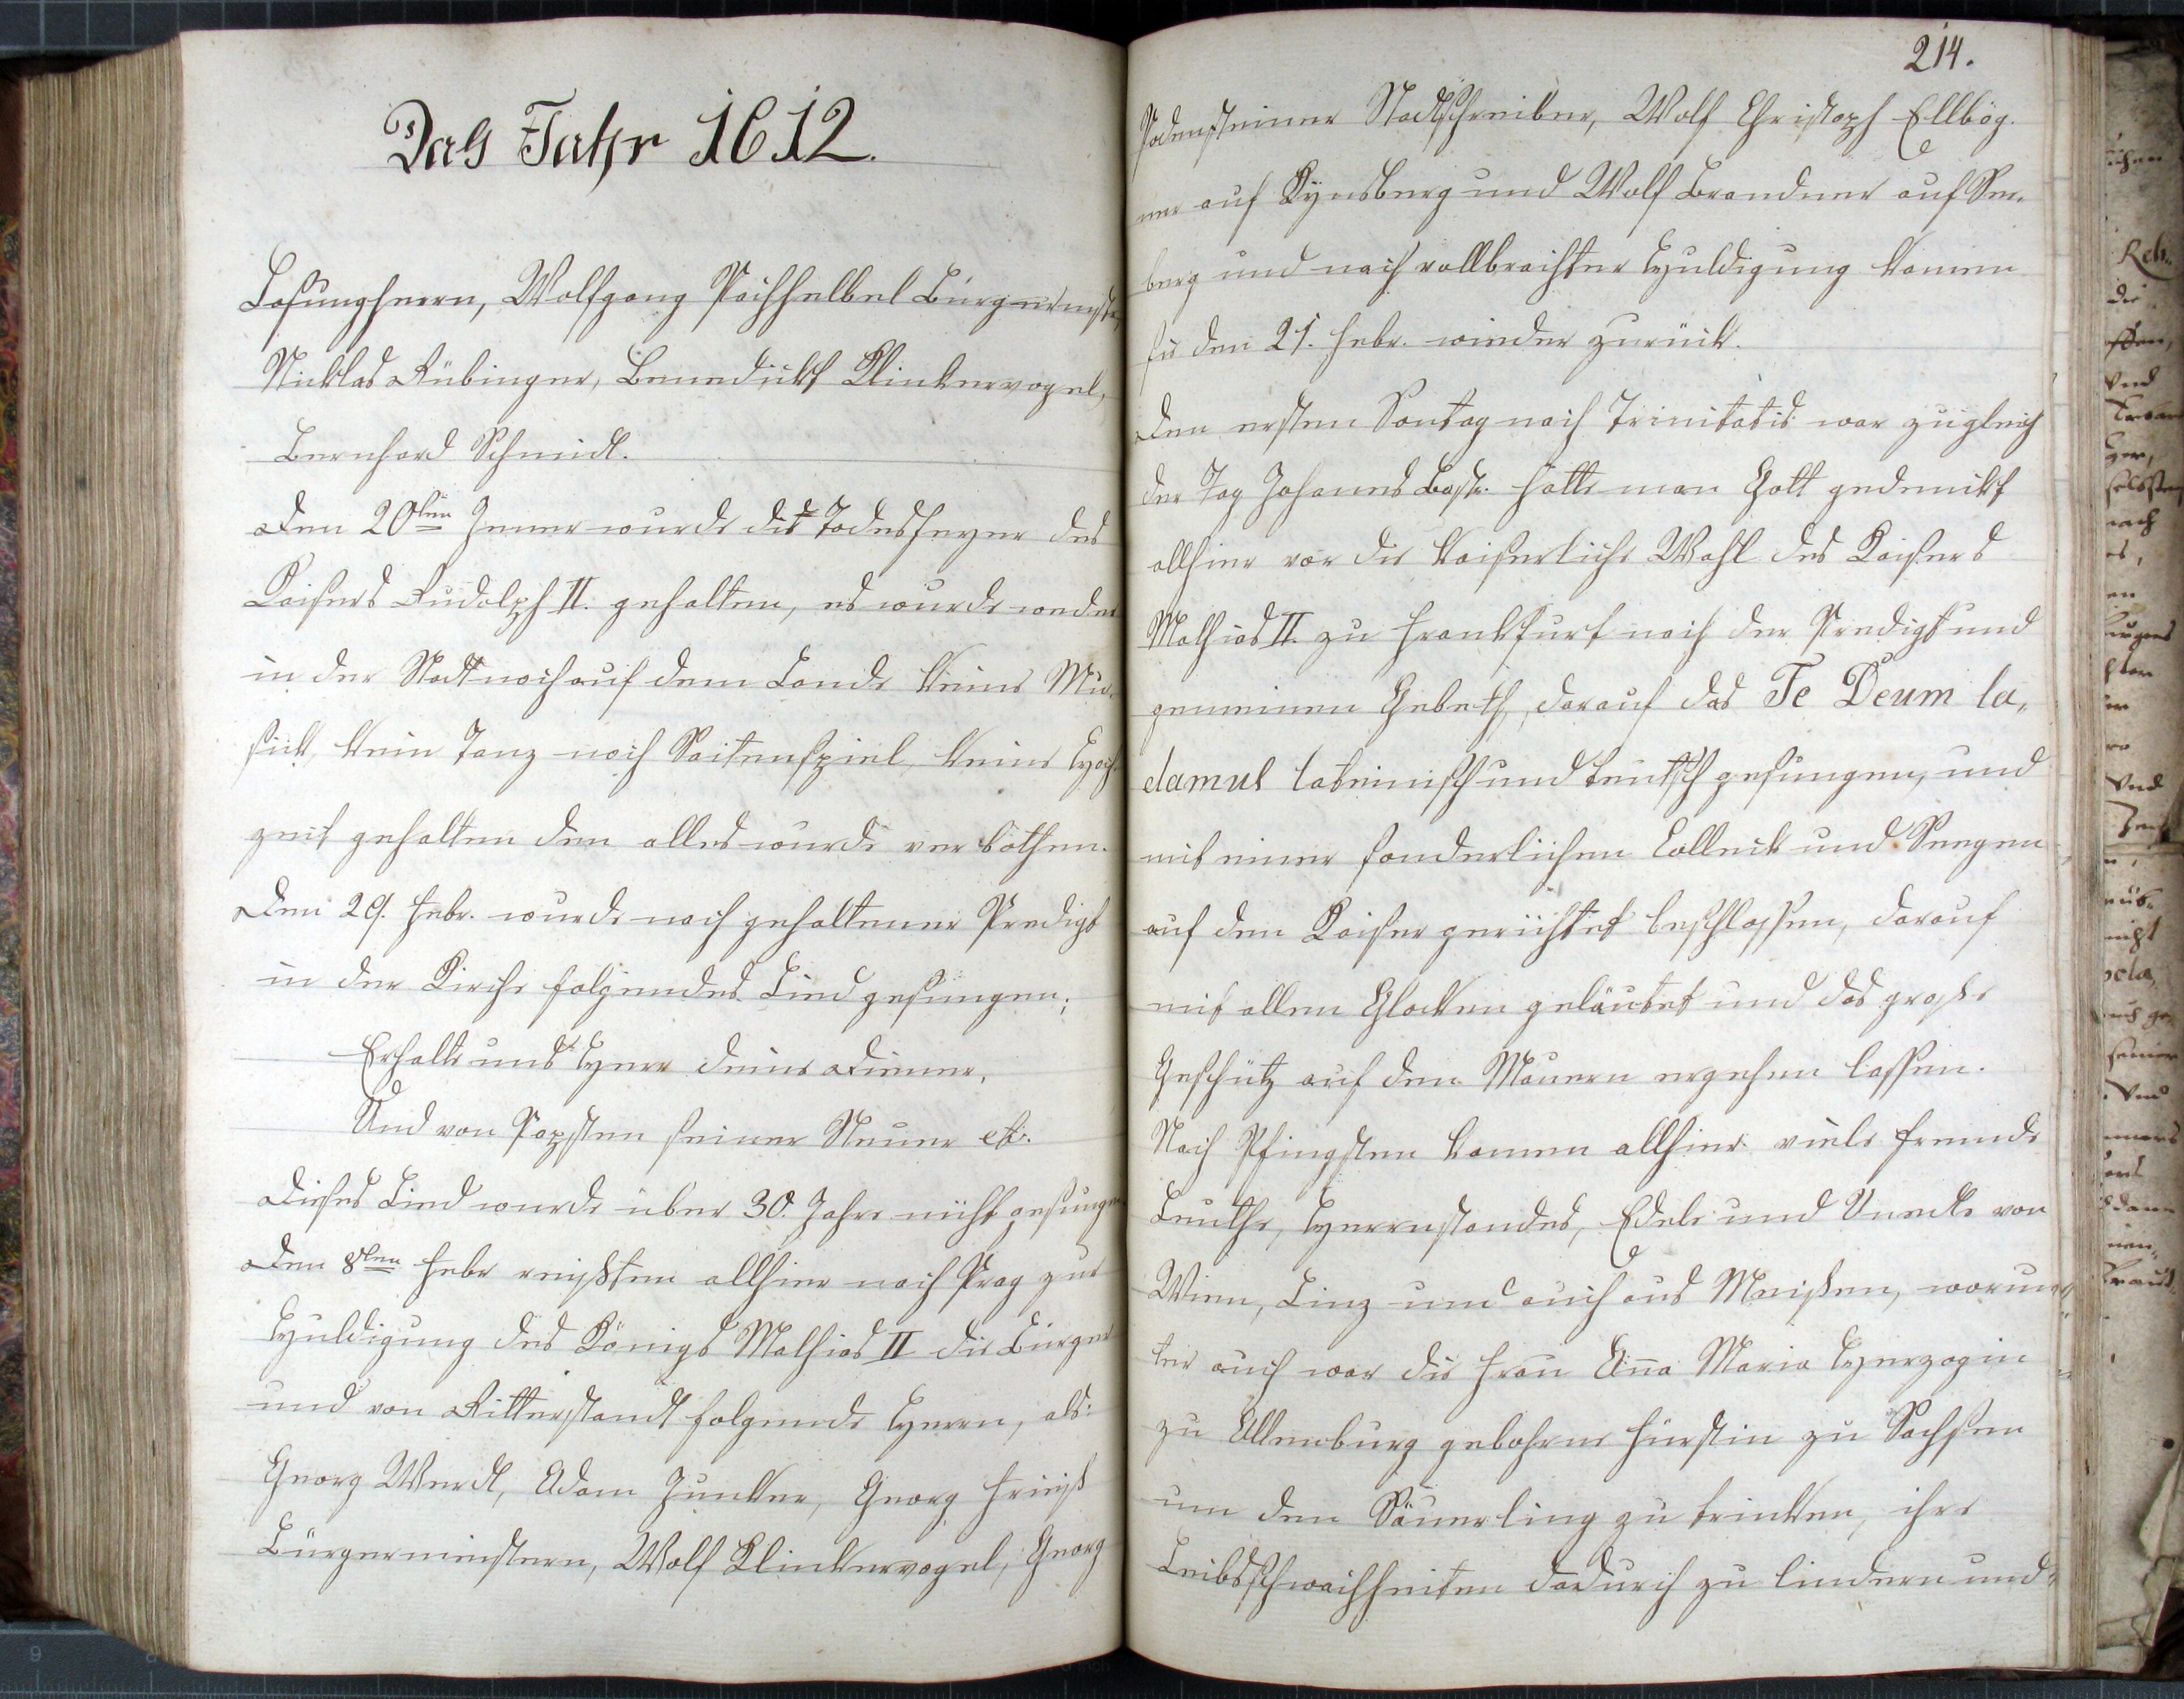 Das Jahr 1612.
Losungherrn, Wolfgang Pachhelbel Bürgermeist.
Nicklas Rübinger, Benedickt Klinkervogel,
Bernhard Schmidt.
Den 20ten Jener wurde die Todesfeyer des
Kaisers Rudolph II. gehalten, es wurde weder
in der Stadt noch auf dem Lande keine Mu,
sick, kein Tanz noch Saitenspiel, keine Hoch,
zeit gehalten den alles wurde verbothen.
Den 29. Febr. wurde nach gehaltener Predigt
in der Kirche folgendes Lied gesungen;
Erhalte uns Herr deine Diener,
Und von Papsten seiner Steuer etc.
Dieses Lied wurde über 30. Jahre nicht gesungen
Den 8ten Febr reißten allhier nach Prag zur
Huldigung des Königs Mathias II die Bürger
und von Ritterstandt folgende Herren, als:
Georg Werdl, Adam Junker, Georg Frieß
Bürgermeistern, Wolf Klinkervogel, Georg
214.
Stadtschreiber, Wolf Christoph Ellbög,
ner auf Kynsberg und Wolf Brandner auf See,
berg und nach vollbrachter Huldigung kamen
sie den 21. Febr. wieder zurück.
Den ersten Sontag nach Trinitatis war zugleich
der Tag Johanes Bapt. hatte man Gott gedenckt
allhier vor die kaiserliche Wahl des Kaisers
Mathias II. zu Frankfurt nach der Predigt und
gemeinen Gebeth, darauf das Te Deum la,
damus lateinisch und teutsch gesungen, und
mit einer sonderlichen Colleck und Seegen
auf den Kaiser gerichtet beschlossen, darauf
mit allen Glocken geläutet und das große
Geschütz auf den Mauern ergehen lassen.
Nach Pfingsten kamen allhier viele fremde
Leuthe, Herrnstandes, Edele und Unedle von
Wien, Linz und auch aus Meißen, worun,
ter auch war die Frau Anna Maria Herzogin
zu Altenburg gebohrne Fürstin zu Sachsen
um den Säuerling zu trinken, ihre
Leibsschwachheiten dadurch zu lindern und